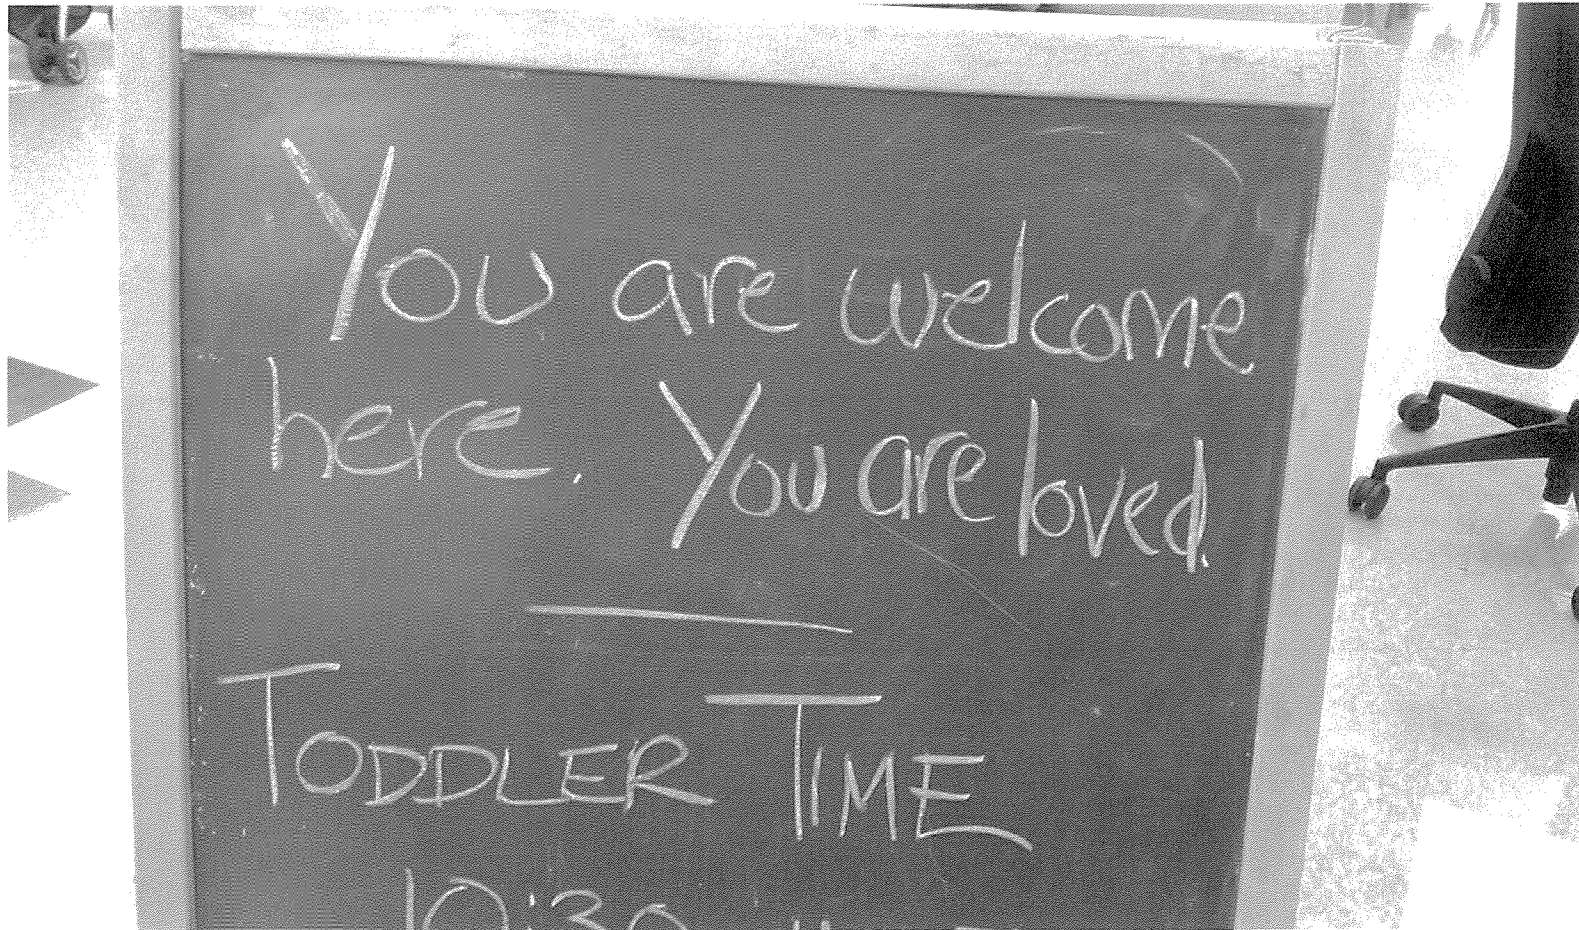 You are welcome
here. You are loved.
TODDLER TIME
10:30